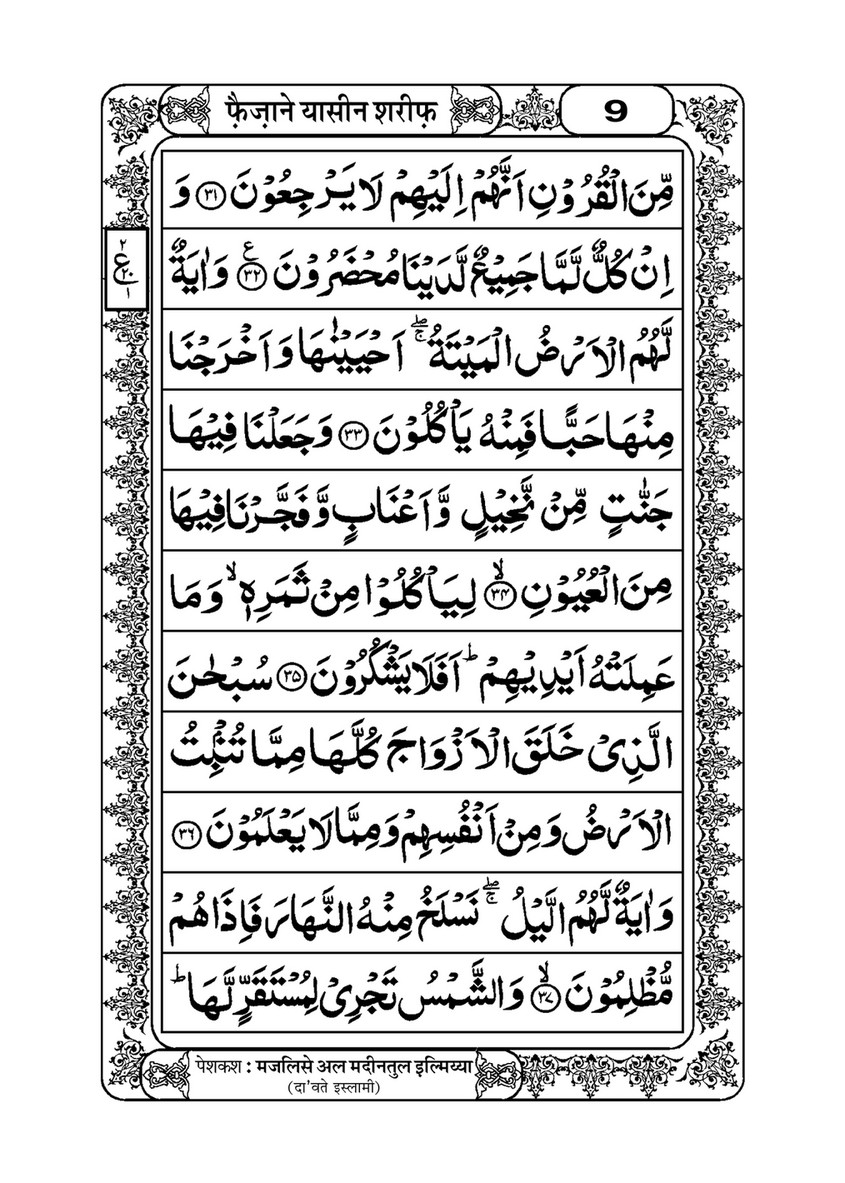 फ़ैज़ाने यासीन शरीफ़
9
مِّنَ الْقُرُوْنِ اَنَّهُمْ اِلَیْهِمْ لَا یَرْجِعُوْنَ ﴿۳۱﴾ وَ
اِنْ كُلٌّ لَّمَّا جَمِیْعٌ لَّدَیْنَا مُحْضَرُوْنَ ﴿۳۲﴾ ع وَ اٰیَةٌ
۲ ع ۲۰ ۱
لَّهُمُ الْاَرْضُ الْمَیْتَةُ ۚۖ اَحْیَیْنٰهَا وَ اَخْرَجْنَا
مِنْهَا حَبًّا فَمِنْهُ یَاْكُلُوْنَ ﴿۳۳﴾ وَ جَعَلْنَا فِیْهَا
جَنّٰتٍ مِّنْ نَّخِیْلٍ وَّ اَعْنَابٍ وَّ فَجَّرْنَا فِیْهَا
مِنَ الْعُیُوْنِ ﴿ۙ۳۴﴾ لِیَاْكُلُوْا مِنْ ثَمَرِهٖ ۙ وَ مَا
عَمِلَتْهُ اَیْدِیْهِمْ ؕ اَفَلَا یَشْكُرُوْنَ ﴿۳۵﴾ سُبْحٰنَ
الَّذِیْ خَلَقَ الْاَزْوَاجَ كُلَّهَا مِمَّا تُنْۢبِتُ
الْاَرْضُ وَ مِنْ اَنْفُسِهِمْ وَ مِمَّا لَا یَعْلَمُوْنَ ﴿۳۶﴾
وَ اٰیَةٌ لَّهُمُ الَّیْلُ ۚۖ نَسْلَخُ مِنْهُ النَّهَارَ فَاِذَا هُمْ
مُّظْلِمُوْنَ ﴿ۙ۳۷﴾ وَ الشَّمْسُ تَجْرِیْ لِمُسْتَقَرٍّ لَّهَا ؕ
पेशकश : मजलिसे अल मदीनतुल इल्मिय्या
(दा'वते इस्लामी)